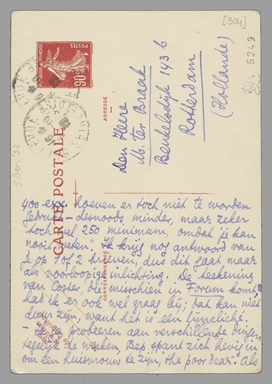 [304]
CARTE POSTALE
ADRESSE
POSTES
90c
Den Heere
M. ter Braak
Beukelsdijk 143 b
Rotterdam
(Hollande)
400 ex. hoeven er toch niet te worden
desnoods minder, maar zeker
toch wel 250 minimum, omdat ik dan
Ik krijg nog antwoord van
je op 7 of 2 brieven, dus dit gaat maar
als voorloopige inlichting. De teekening
van Coster die misschien in Forum komt
had ik er ook wel graag bij; dat kan niet
duur zijn, want het is een lijncliché.
probeeren aan verschillende
tegelijk te werken, Bep spant zich hevig in
om een huisvrouw te zijn, the poor dear. Als